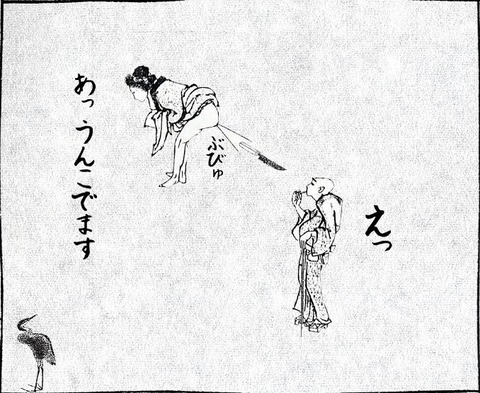 えっ
ぶびゅ
あっ うんこでます